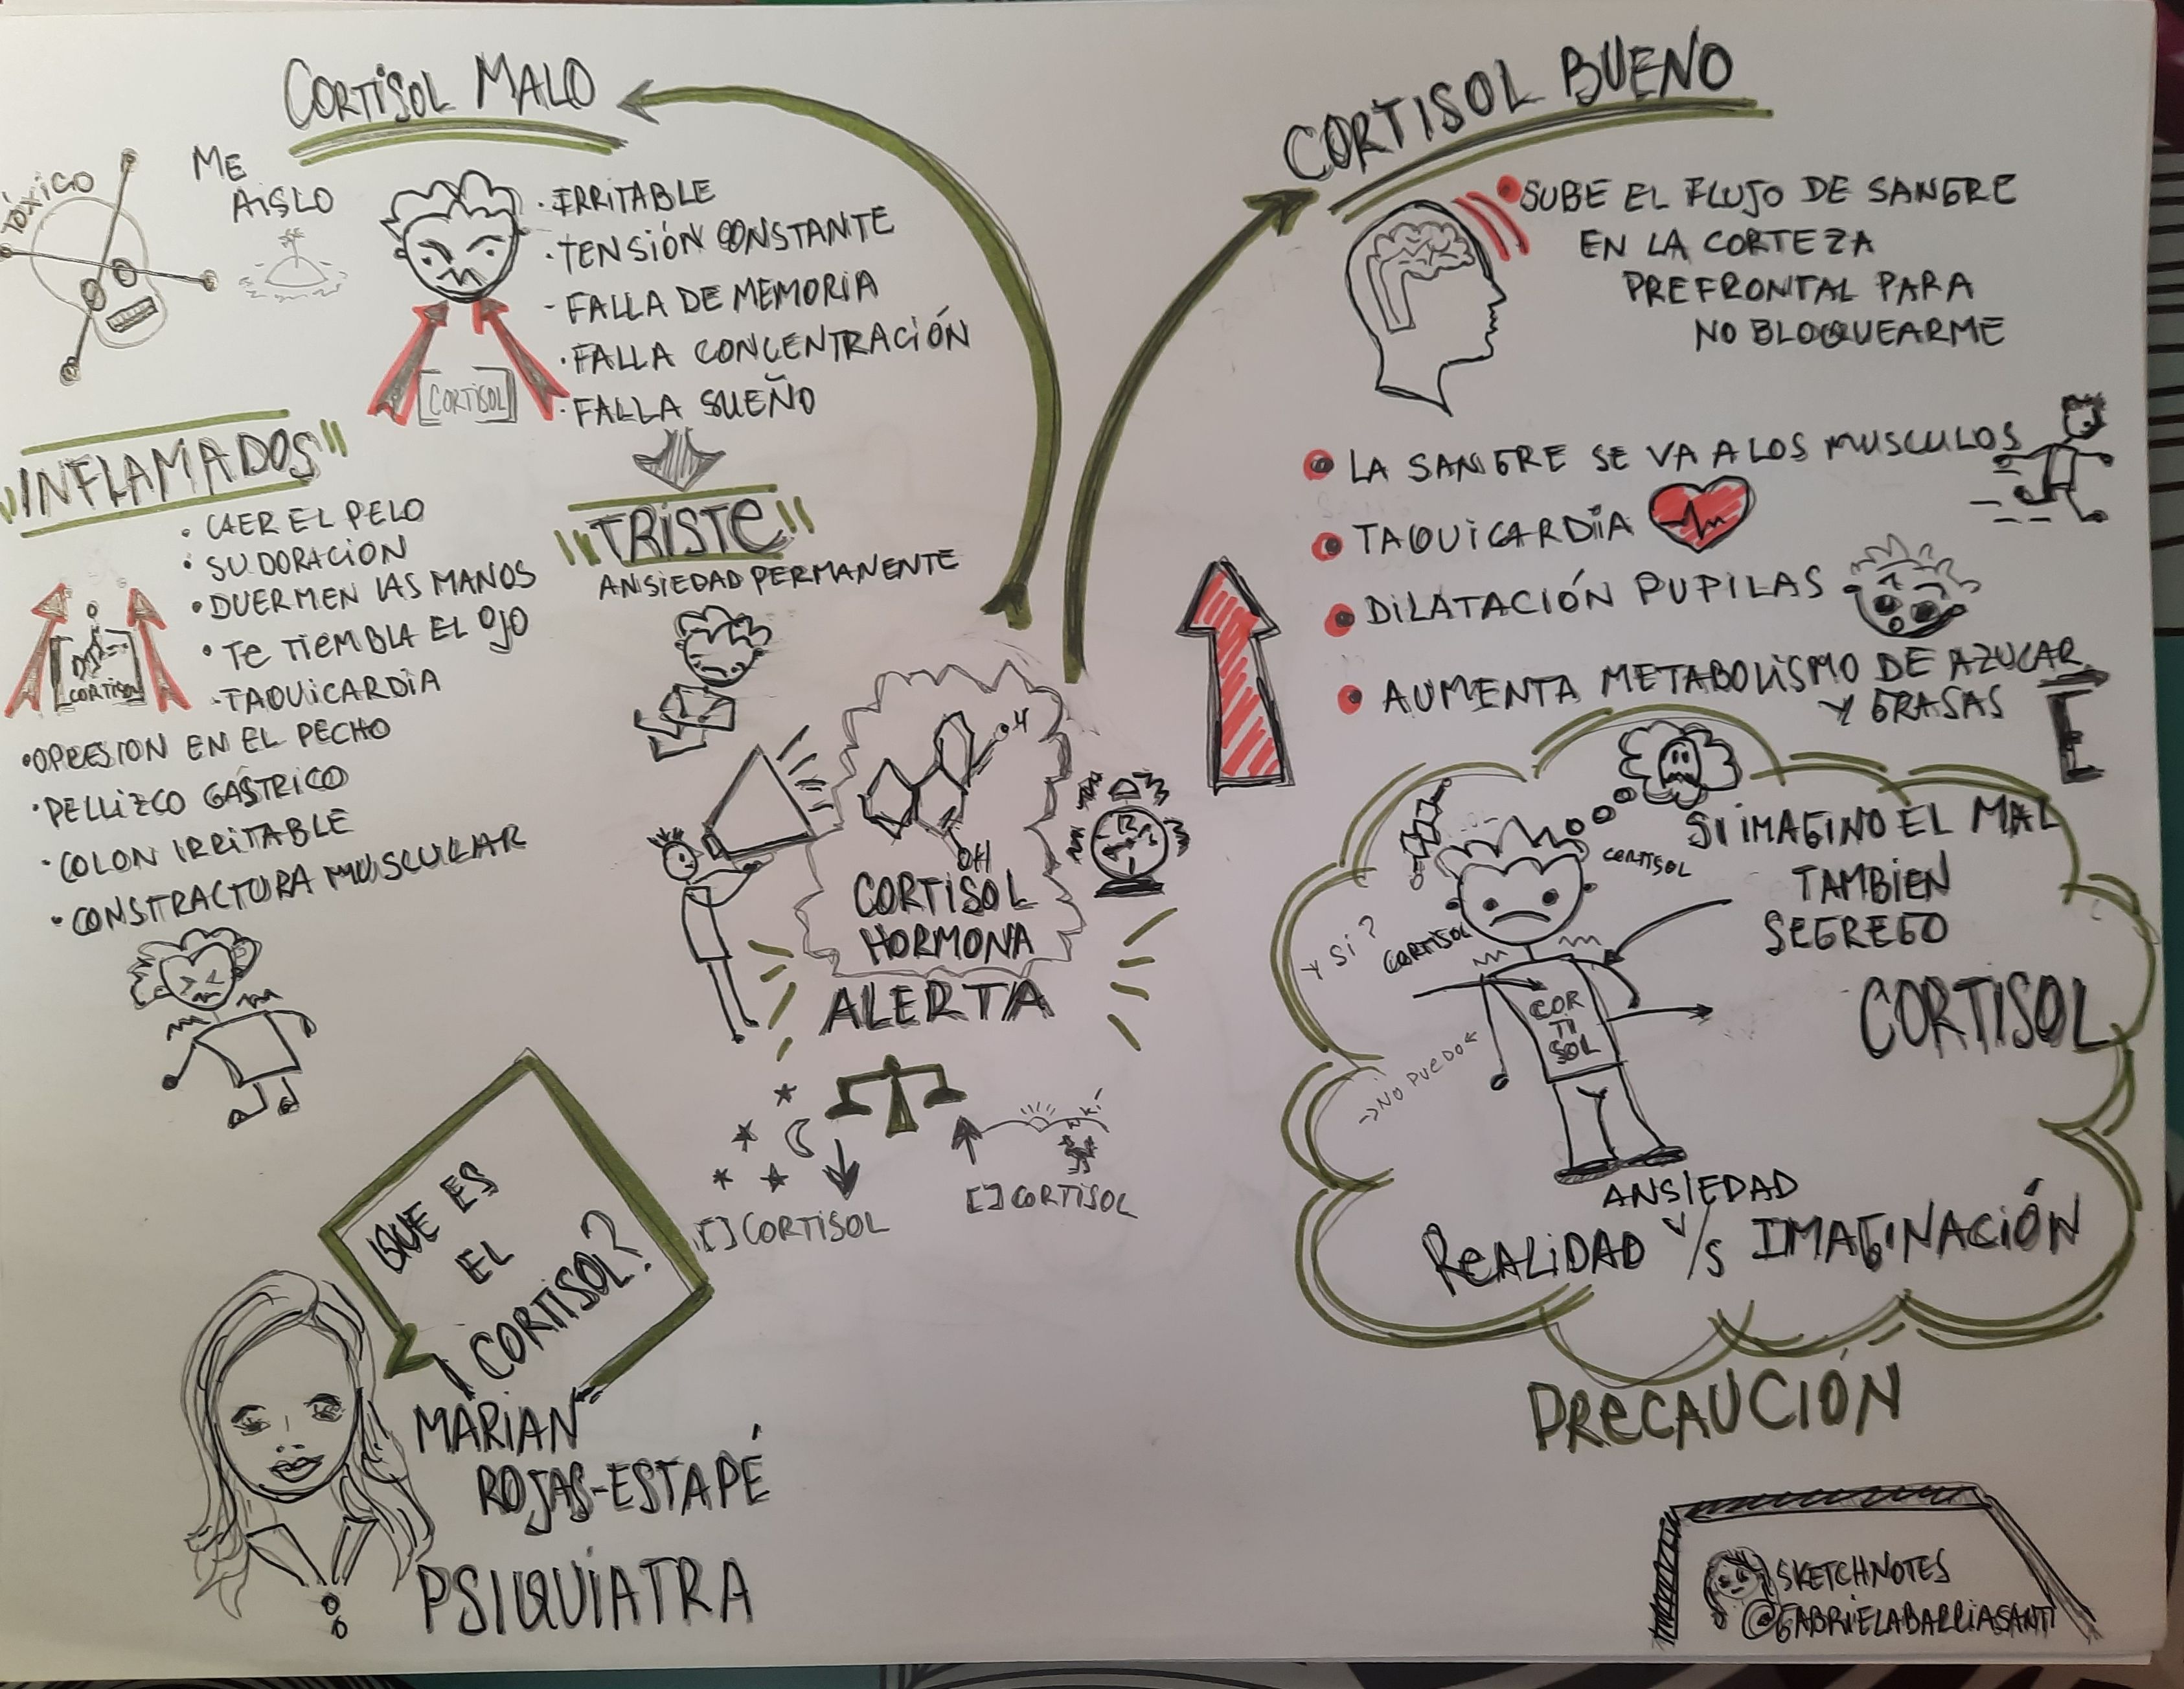 CORTISOL MALO
TÓXICO
ME
AISLO
· IRRITABLE
· TENSIÓN CONSTANTE
- FALLA DE MEMORIA
· FALLA CONCENTRACIÓN
· FALLA SUEÑO
CORTISOL
"INFLAMADOS"
· CAER EL PELO
· SUDORACION
· DUERMEN LAS MANOS
· TE TIEMBLA EL OJO
· TAQUICARDIA
· OPRESION EN EL PECHO
· PELLIZCO GÁSTRICO
· COLON IRRITABLE
· CONSTRACTURA MUSCULAR
CORTISOL
"TRISTE"
ANSIEDAD PERMANENTE
H
OH
CORTISOL
HORMONA
ALERTA
[] CORTISOL
[] CORTISOL
QUE ES
EL
CORTISOL?
MARIAN
ROJAS-ESTAPÉ
PSIQUIATRA
CORTISOL BUENO
• SUBE EL FLUJO DE SANGRE
EN LA CORTEZA
PREFRONTAL PARA
NO BLOQUEARME
• LA SANGRE SE VA A LOS MUSCULOS
• TAQUICARDIA
• DILATACIÓN PUPILAS
• AUMENTA METABOLISMO DE AZUCAR
Y GRASAS
E
SI IMAGINO EL MAL
TAMBIEN
SEGREGO
CORTISOL
CORTISOL
Y SI?
CORTISOL
COR
TI
SOL
NO PUEDO
ANSIEDAD
REALIDAD V/S IMAGINACIÓN
PRECAUCIÓN
SKETCHNOTES
@GABRIELABARRIASANTI